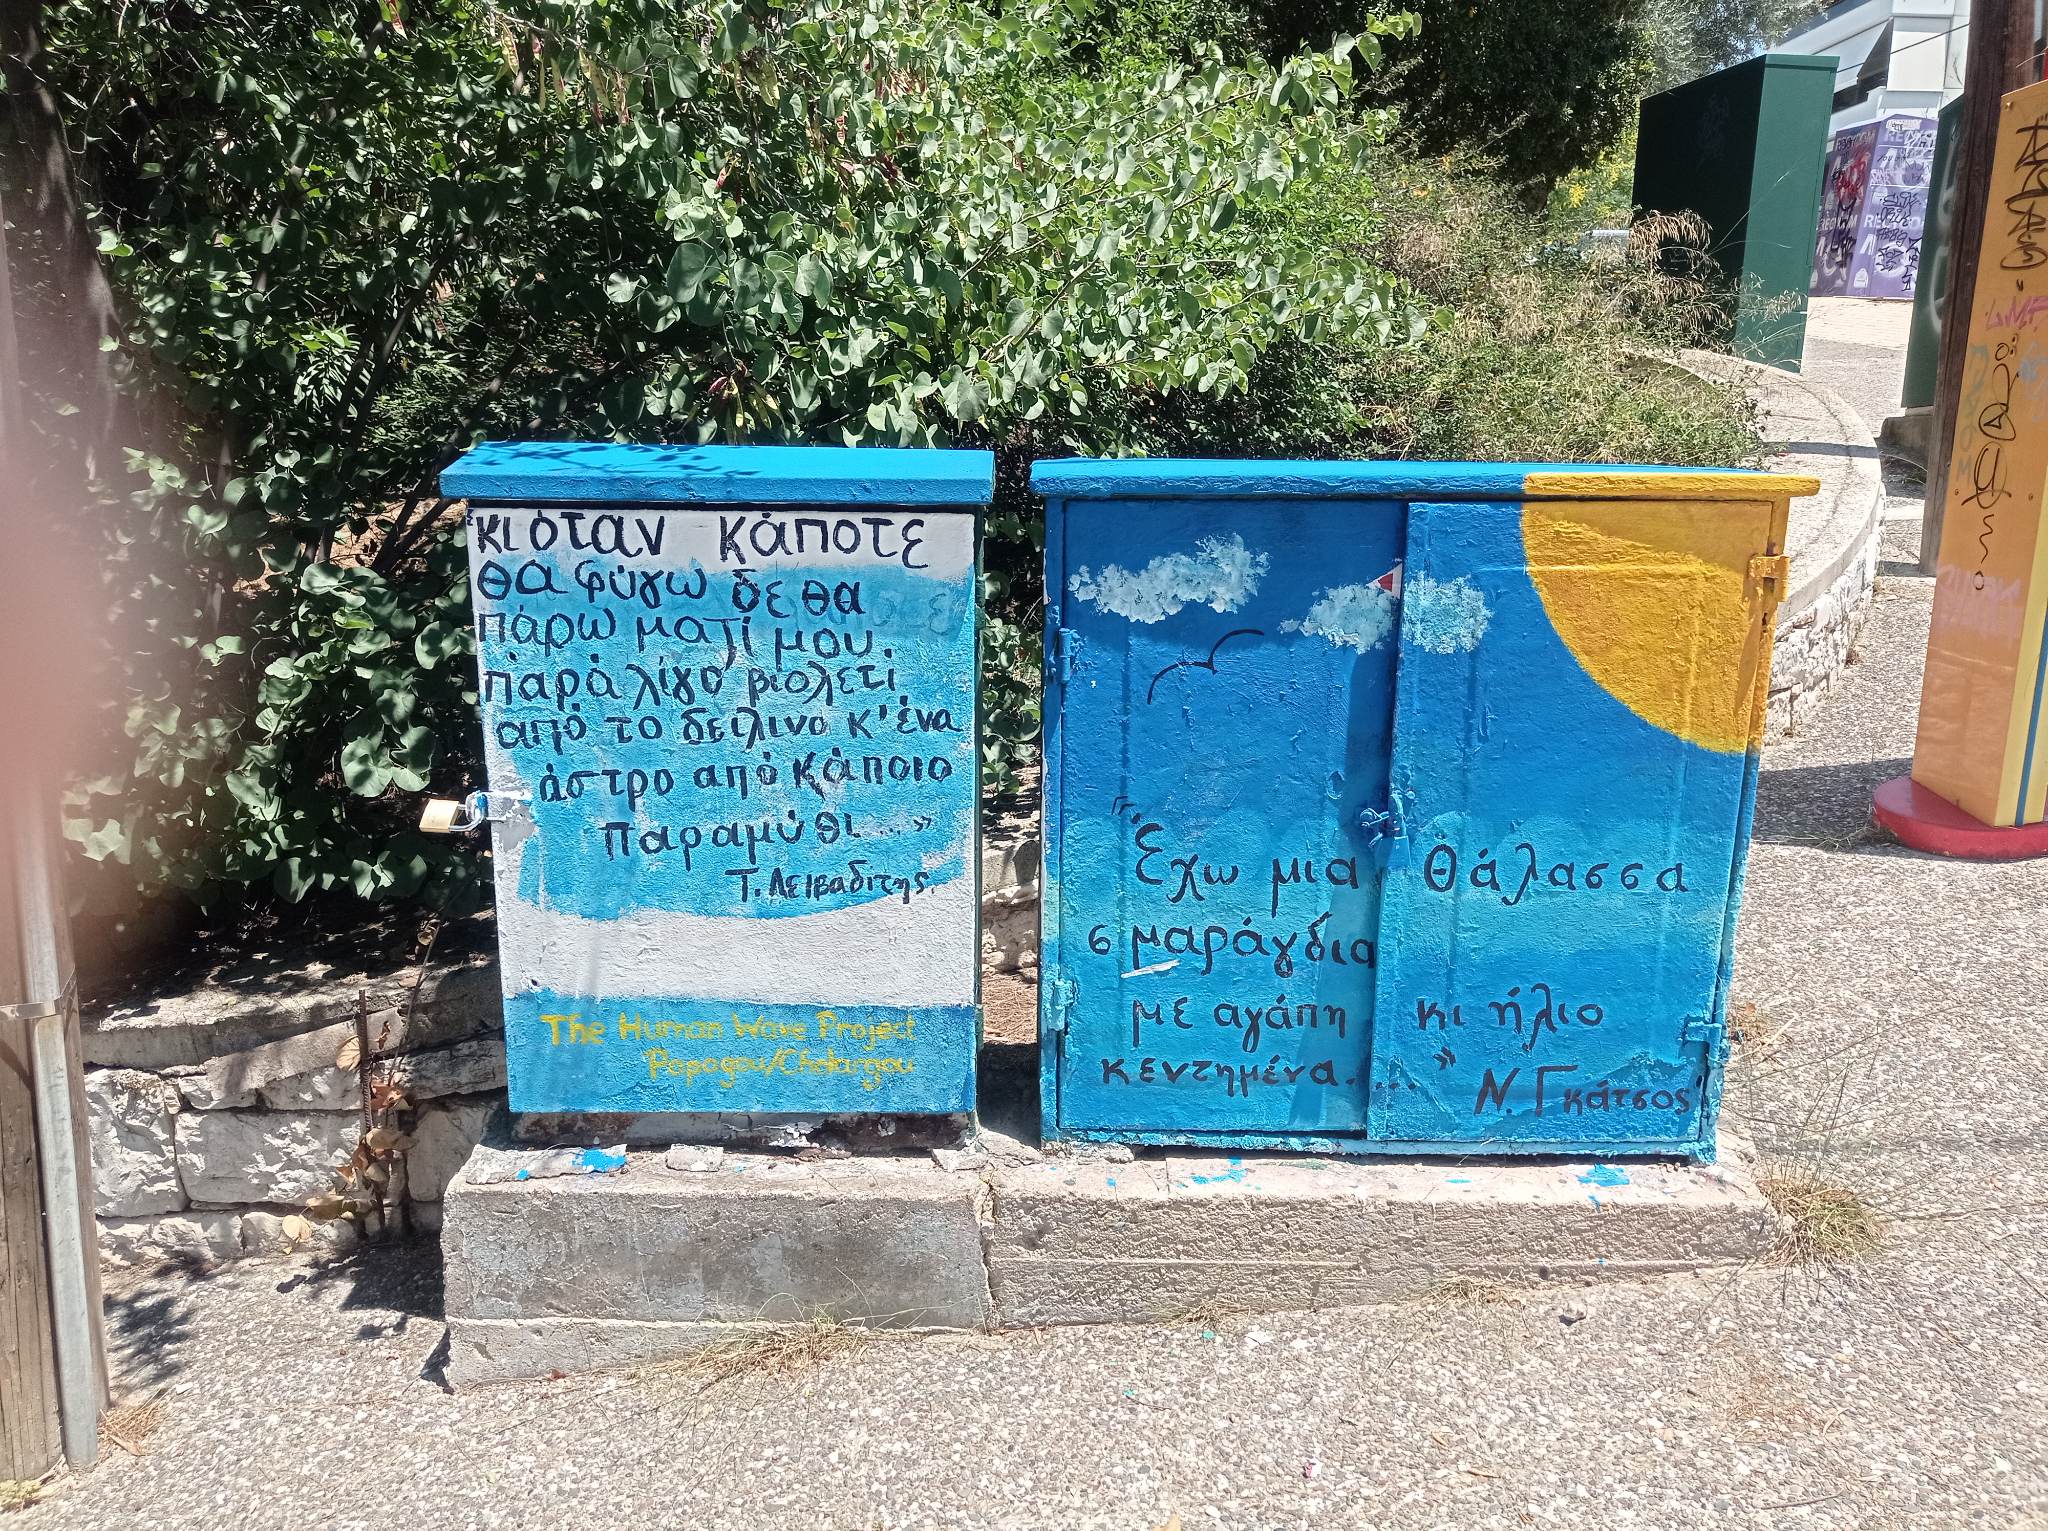 “κι όταν κάποτε
θα φύγω δε θα
πάρω μαζί μου.
παρά λίγο βιολετί
από το δειλινο κ' ένα
άστρο από κάποιο
παραμύθι...»
Τ. Λειβαδίτης.
The Human Wave Project
Papagou/Cholargou
“Έχω μια θάλασσα
σμαράγδια
με αγάπη κι ήλιο
κεντημένα.....”
Ν. Γκάτσος